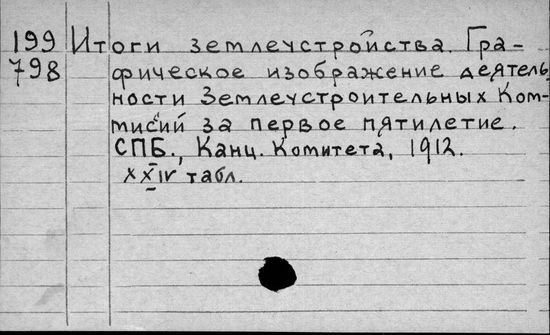 199 Итоги землеустройства. Гра-
798 фическое изображение деятель-
ности Землеустроительных Ком-
миссий за первое пятилетие.
СПБ., Канц. Комитета, 1912.
XXIV табл.